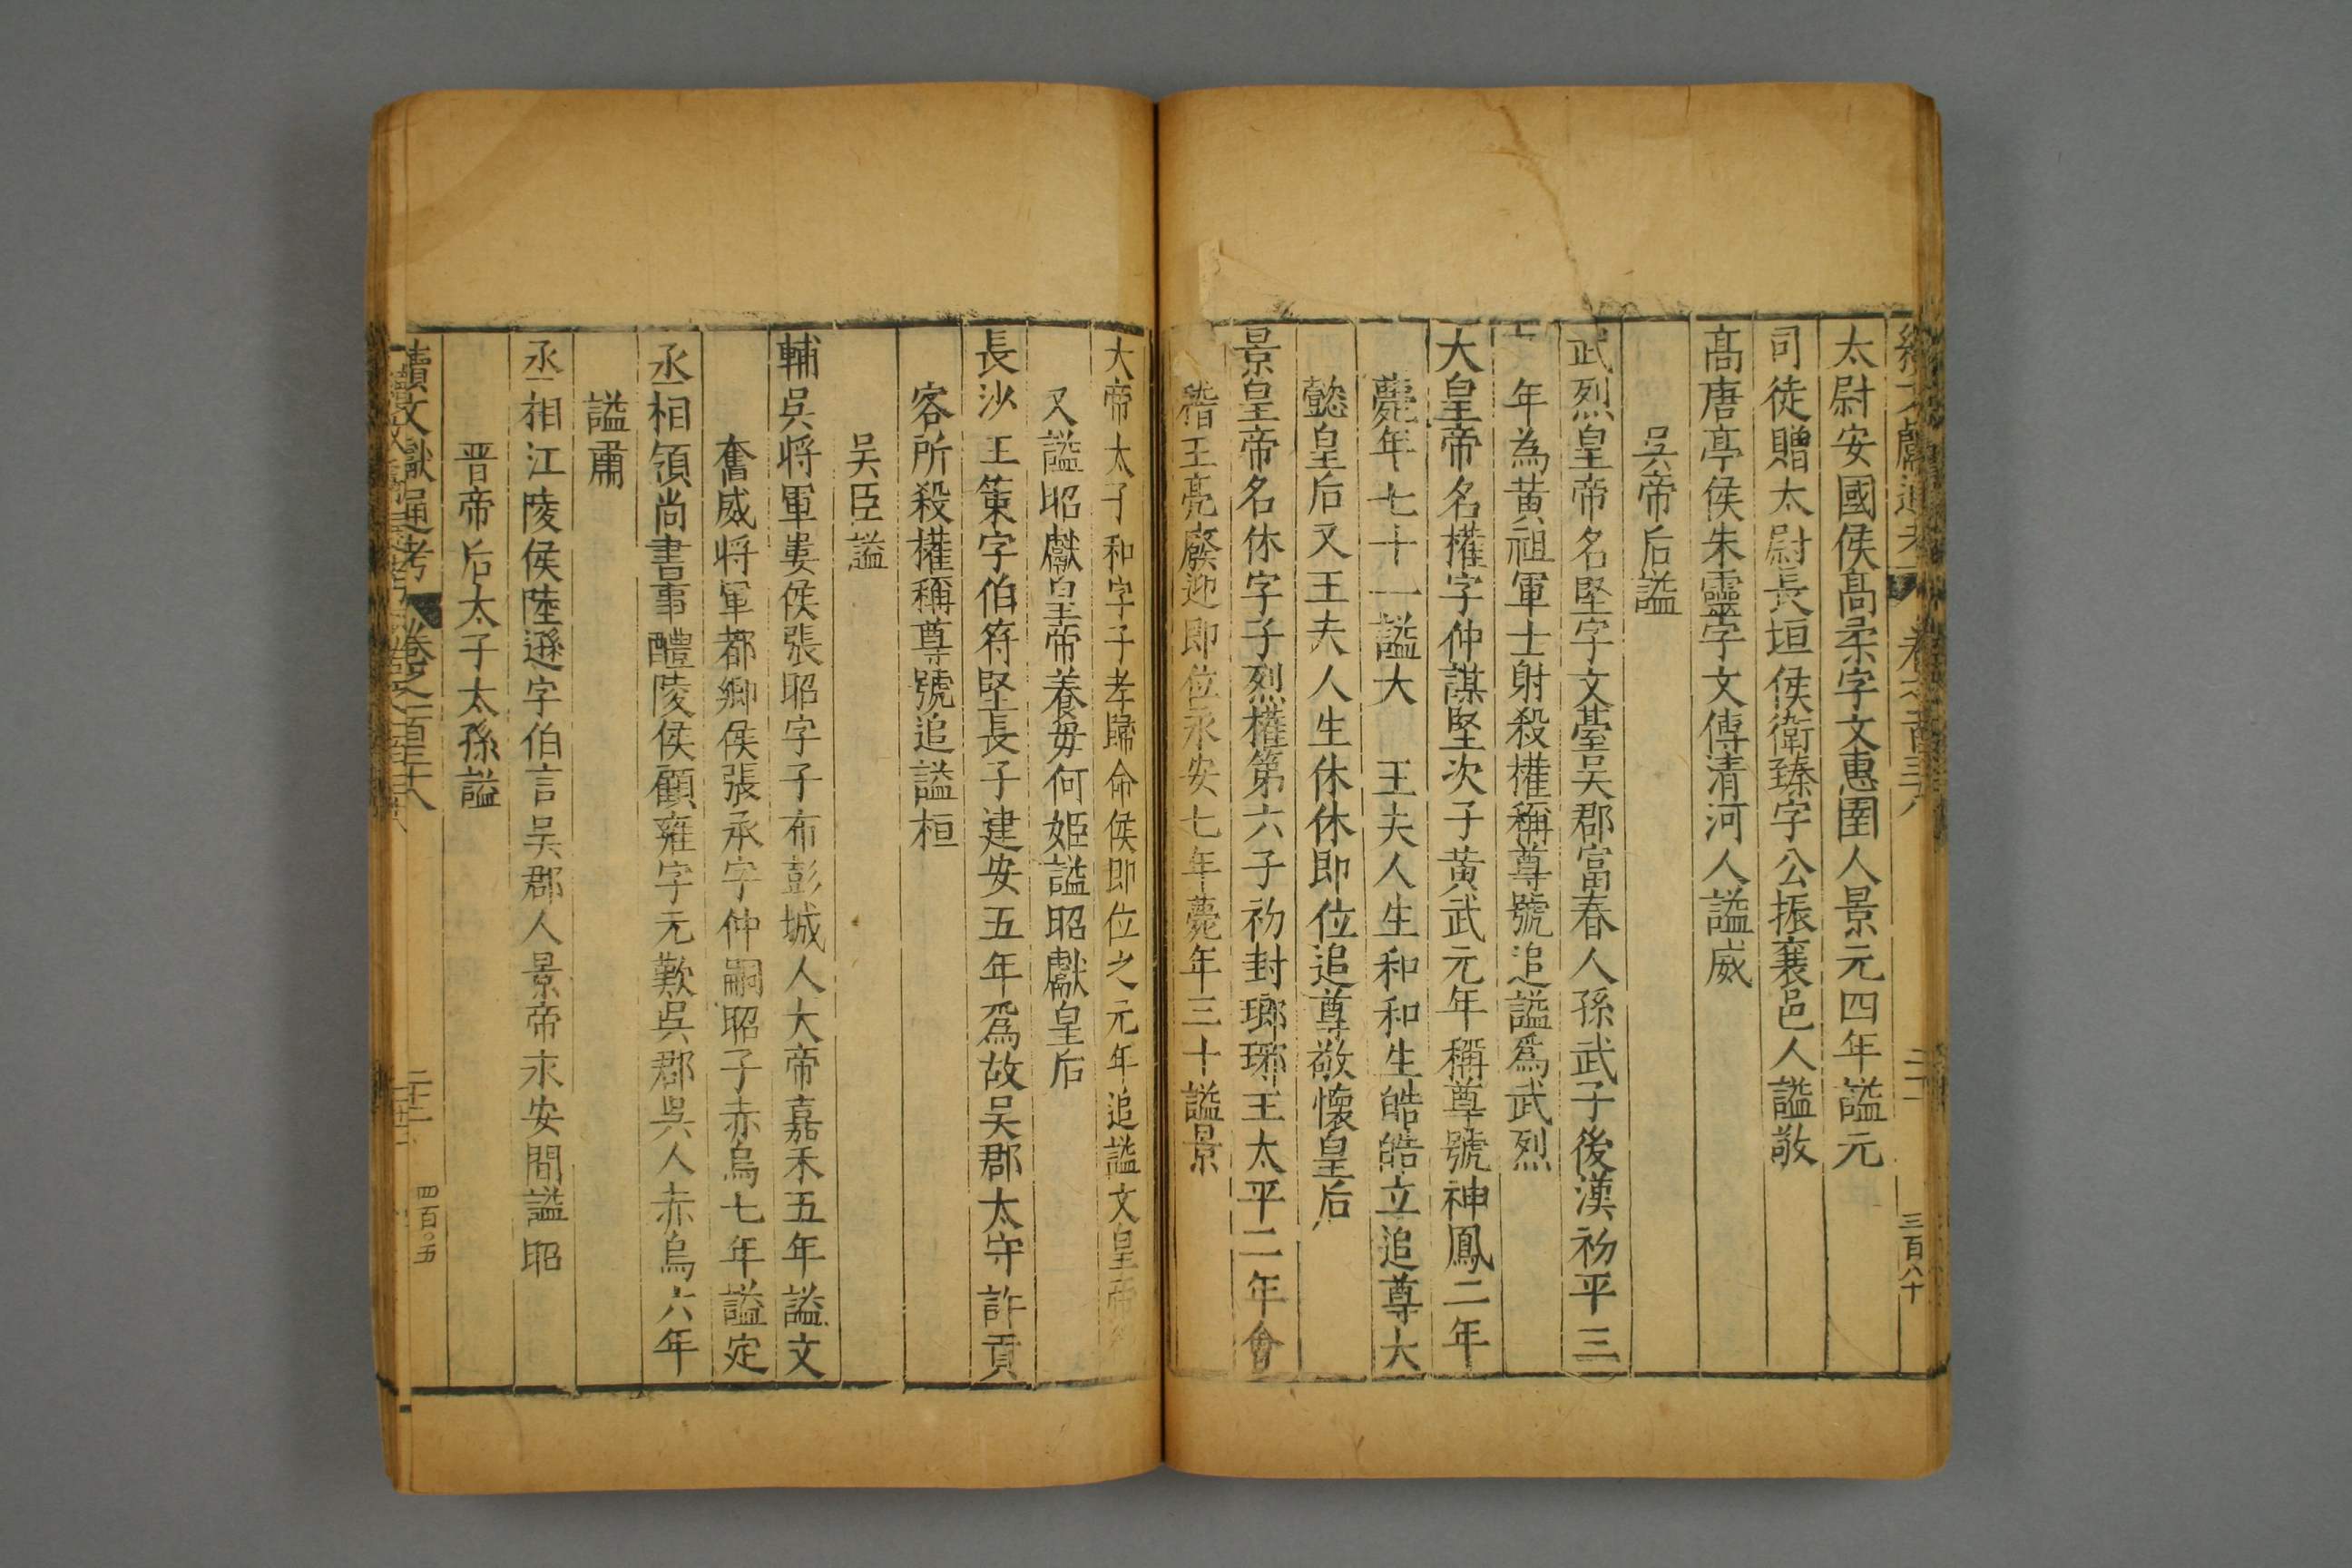 續文獻通考 卷之一百三十八 三百八十
太尉安國侯高柔字文惠圉人景元四年謚元
司徒贈太尉長垣侯衛臻字公振襄邑人謚敬
高唐亭侯朱靈字文傳清河人謚威
吳帝后謚
武烈皇帝名堅字文臺吳郡富春人孫武子後漢初平三
年為黃祖軍士射殺權稱尊號追謚爲武烈
大皇帝名權字仲謀堅次子黃武元年稱尊號神鳳二年
薨年七十一謚大 王夫人生和和生皓皓立追尊大
懿皇后又王夫人生休休即位追尊敬懷皇后
景皇帝名休字子烈權第六子初封瑯琊王太平二年會
稽王亮廢迎即位永安七年薨年三十謚景
大帝太子和字子孝歸命侯即位之元年追謚文皇帝
又謚昭獻皇帝養毋何姬謚昭獻皇后
長沙王策字伯符堅長子建安五年爲故吴郡太守許貢
客所殺權稱尊號追謚桓
吴臣謚
輔吳将軍婁侯張昭字子布彭城人大帝嘉禾五年謚文
奮威将軍都鄉侯張承字仲嗣昭子赤烏七年謚定
丞相領尚書事醴陵侯顧雍字元歎吳郡吳人赤烏六年
謚肅
丞相江陵侯陸遜字伯言吴郡人景帝永安間謚昭
晋帝后太子太孫謚
續文獻通考 卷之一百三十八 二十二 四百〇五